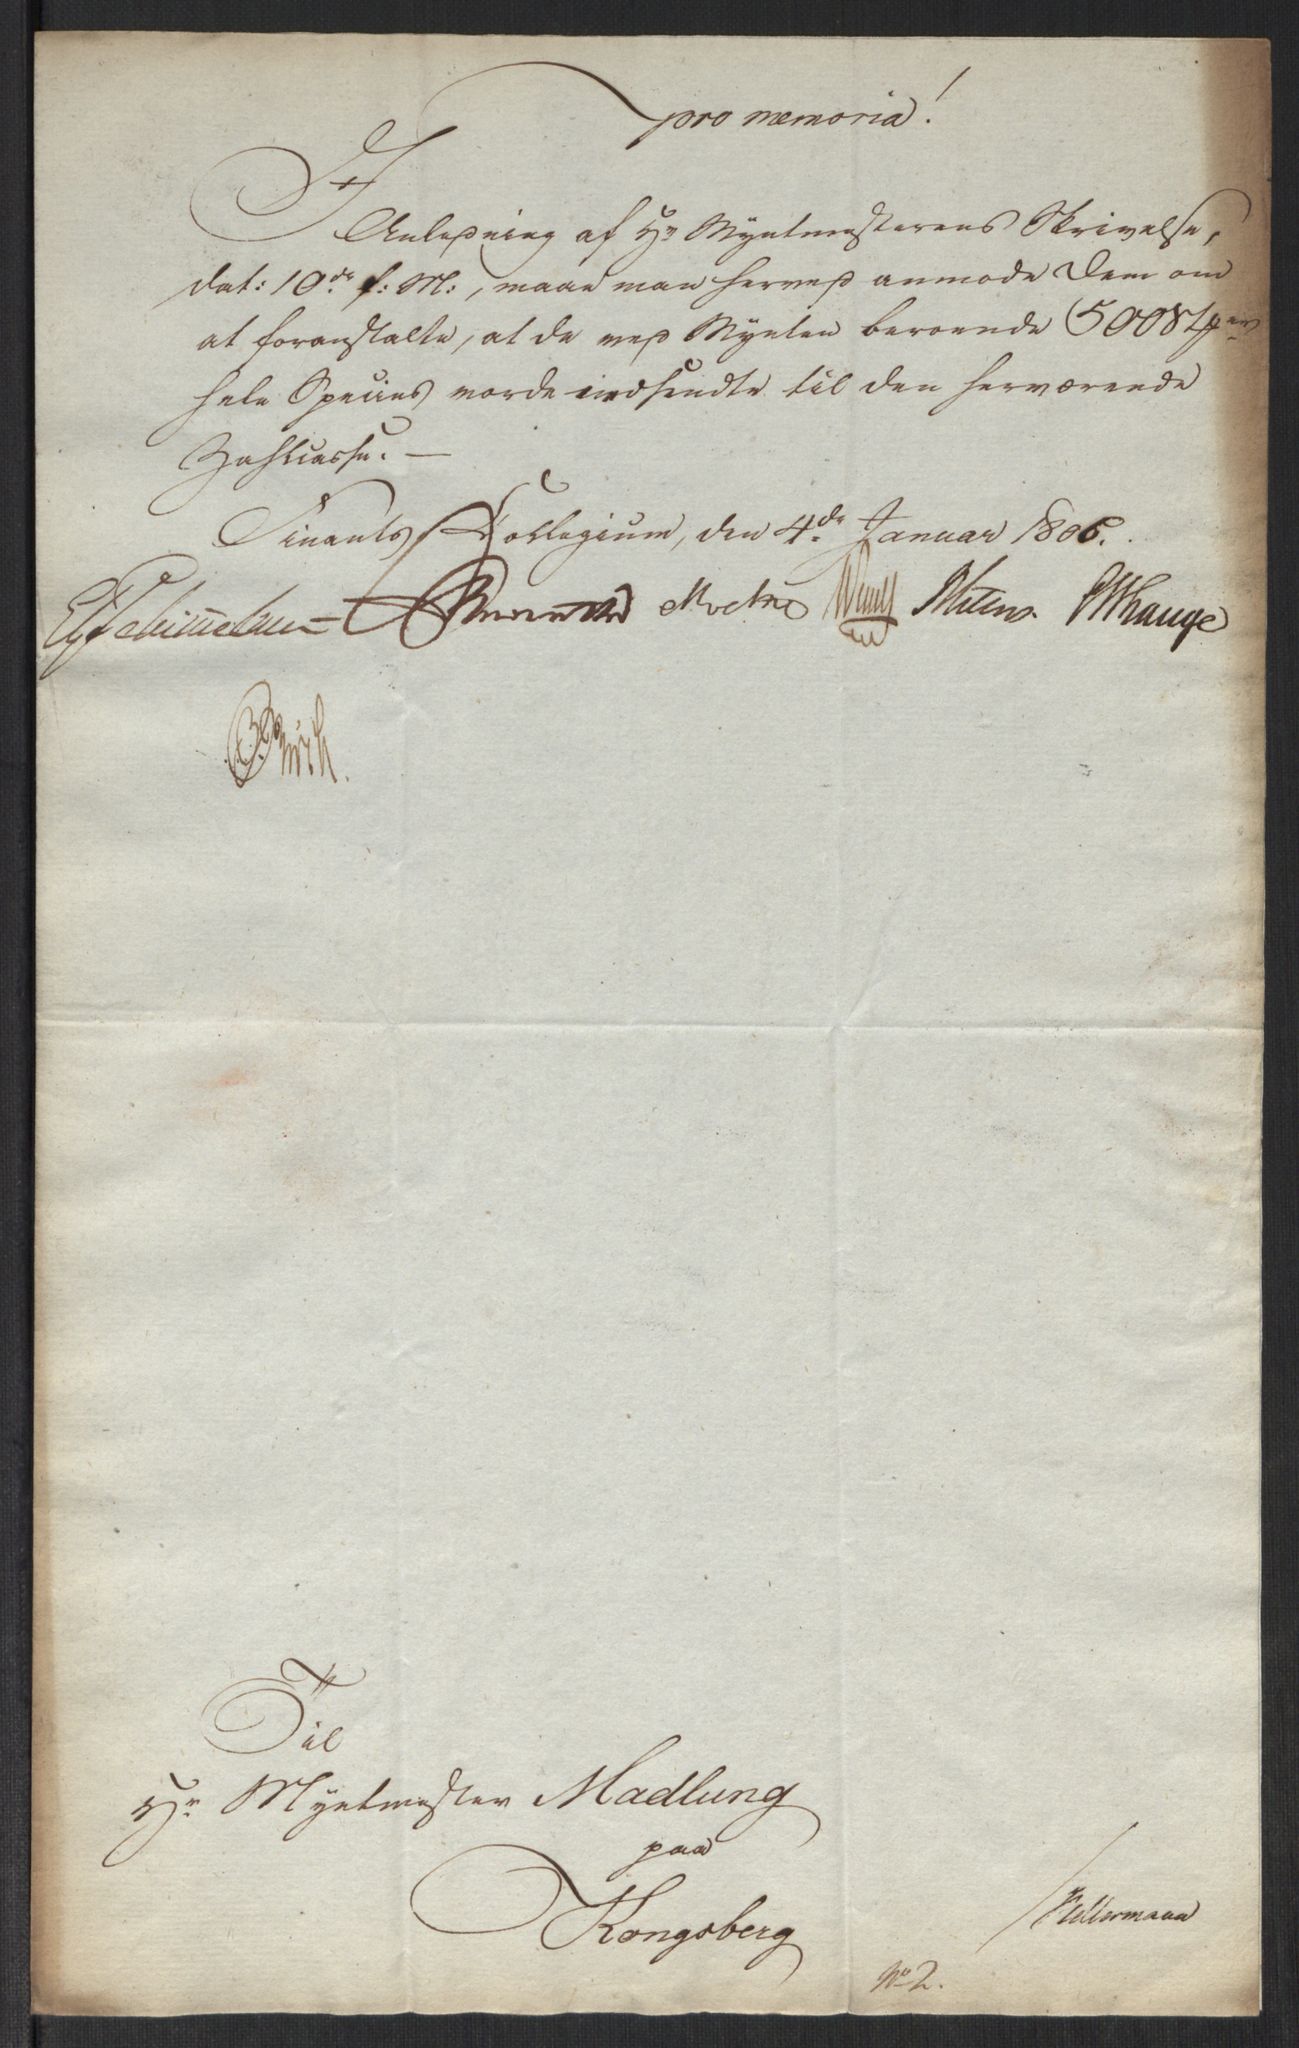 pro memoria!
I
Anledning af Hr Myntmesterens Skrivelse,
dat: 10de f: M:, maae man herved anmode Dem om
at foranstalte, at de ved Mynten beroende 5008
hele Species vorde indsendte til den herværende
Zahlcasse. —
Finants Collegium, den 4de Januar 1806.
Schimmelmann
PWhauge
Til
Hr Myntmester Madlung
paa
Kongsberg
Kellermann
No 2.